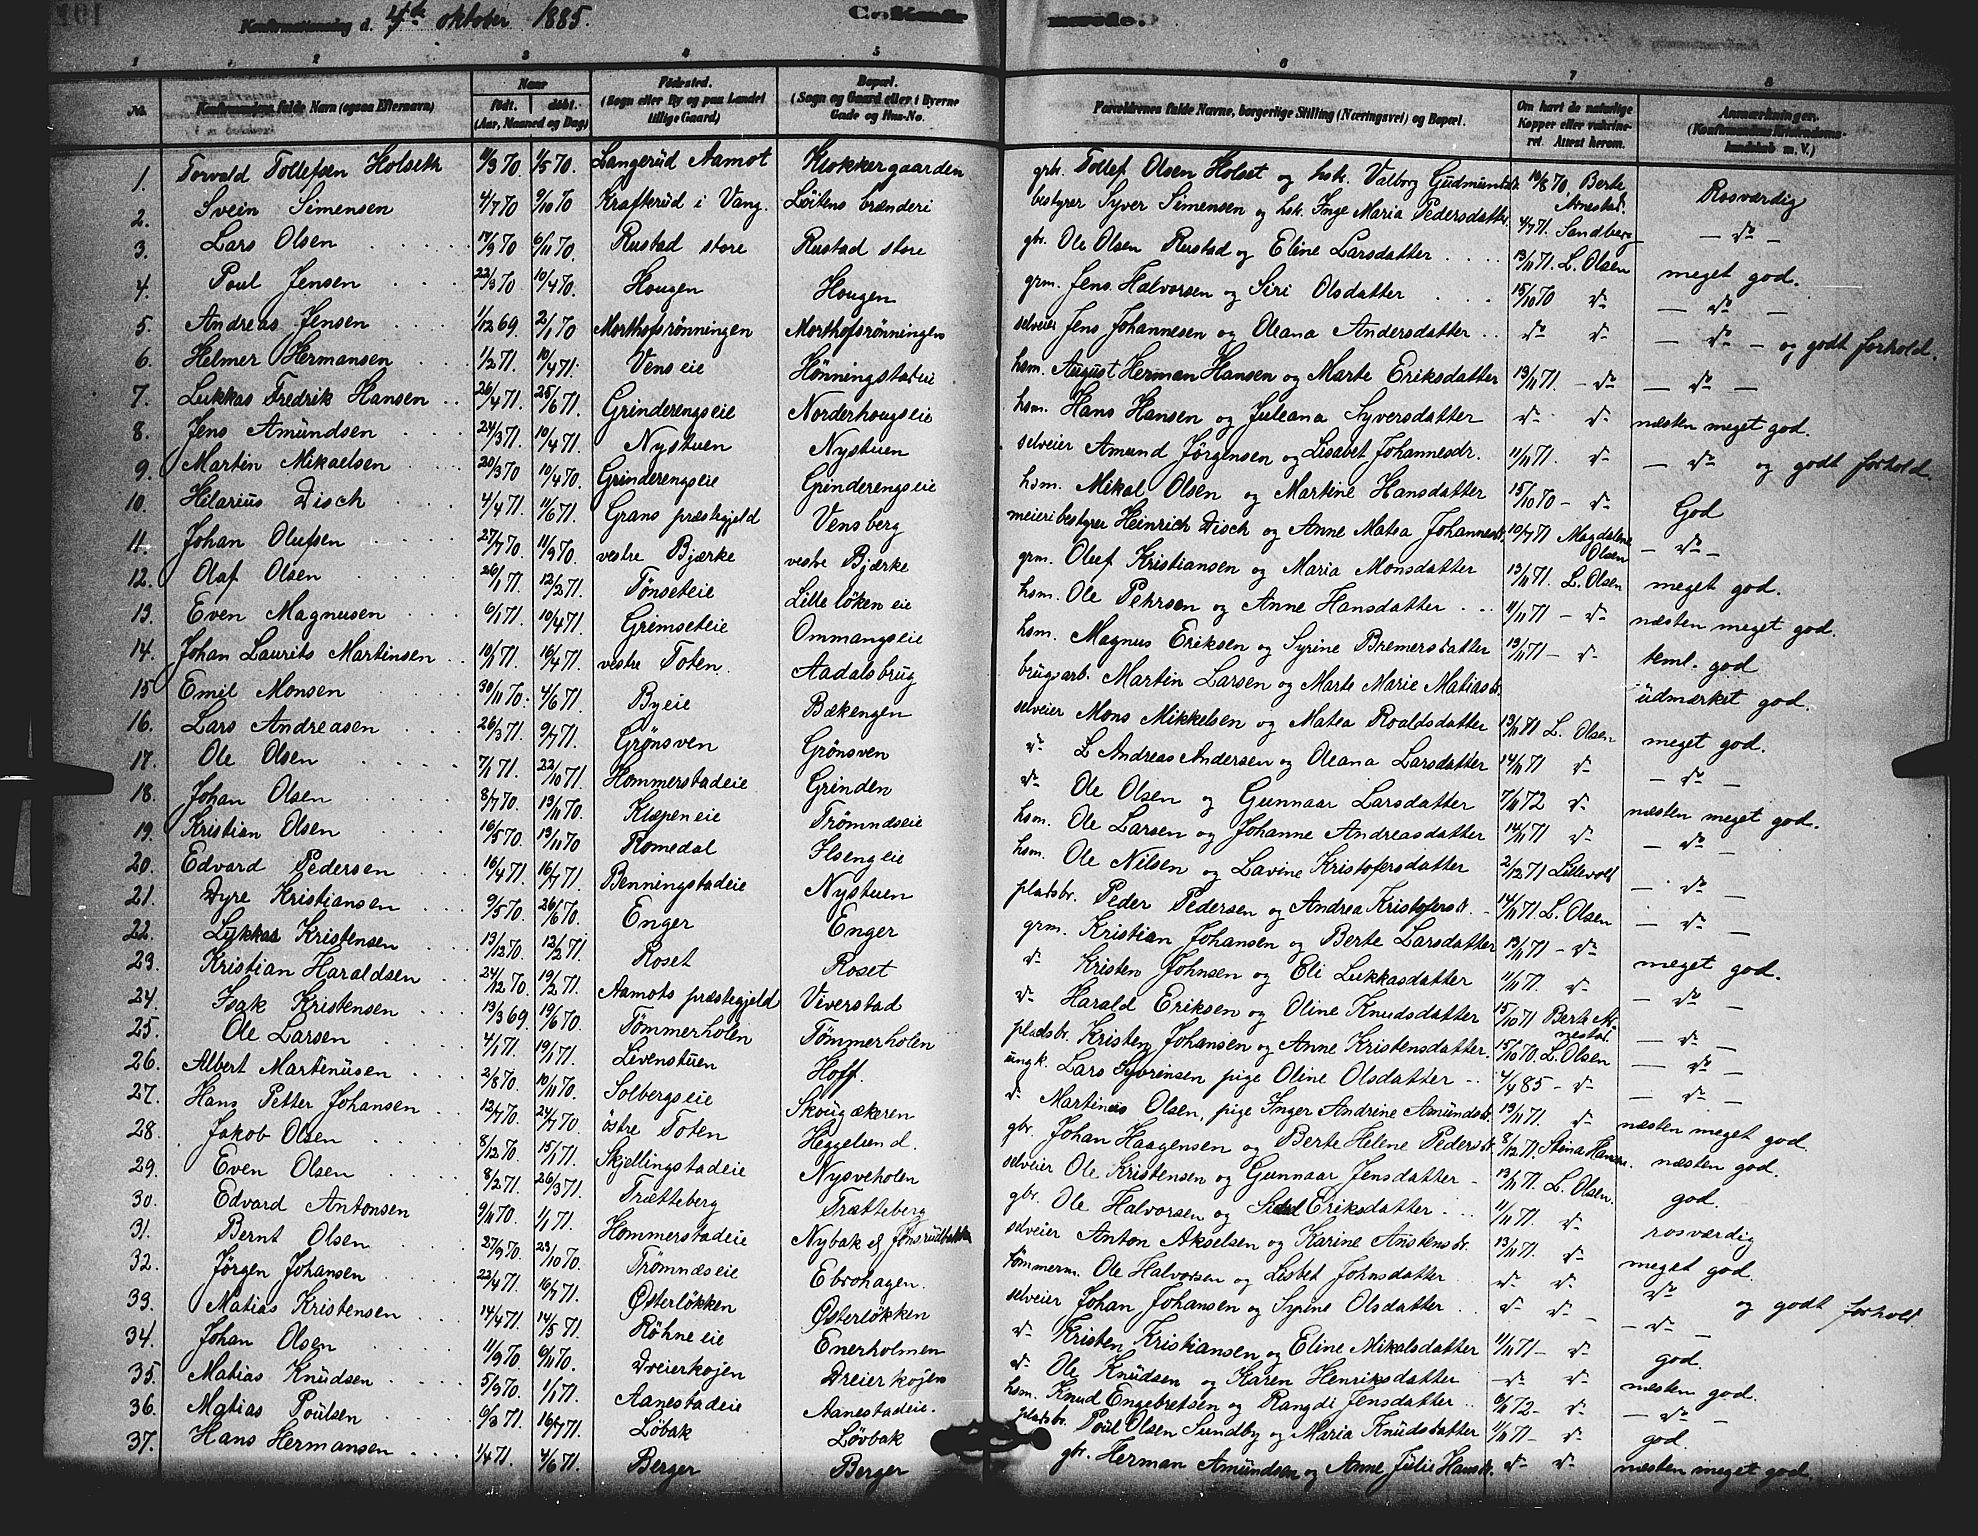 Konfirmationsdag d. 4de oktober 1885.
Confirmerede.
1 2 3 4 5 6 7 8
No. Konfirmandens fulde Navn (ogsaa Efternavn) Naar født. døbt. (Aar, Maaned og Dag) Fødested. (Sogn eller By og paa Landet tillige Gaard) Bopæl. (Sogn og Gaard eller i Byerne Gade og Hus-No. Forældrenes fulde Navne, borgerlige Stilling (Næringsvei) og Bopæl. Om havt de naturlige Kopper eller vakcineret. Attest herom. Anmærkninger. (Konfirmandens Kristendomskundskab m. V.)
1. Torvald Tollefsen Holseth 11/3 70 1/5 70. Langerud Aamot Klokkergaarden gbr. Tollef Olsen Holset og hstr. Valborg Gudmundsdr. 10/8 70, Berte Arnestad. Rosværdig
2. Svein Simensen 4/7 70 9/10 70 Krafterud i Vang. Løitens brænderi bestyrer Syver Simensen og hst. Inge Maria Pedersdatter 4/7 71. Sandberg — do —
3. Lars Olsen 14/9 70 6/11 70. Rustad store Rustad store gbr. Ole Olsen Rustad og Eline Larsdatter 13/11 71. L. Olsen meget god.
4. Poul Jensen 22/3 70 10/4 70. Hougen Hougen grm. Jens Halvorsen og Siri Olsdatter 15/10 70 do — do —
5. Andreas Jensen 1/12 69. 2/1 70 Morthofsrønningen Morthofsrønningen selveier Jens Johannesen og Oleana Andersdatter do do — do — og godt forhold.
6. Helmer Hermansen 1/2 71. 10/4 71. Venseie Hønningstadeie hsm. August Herman Hansen og Marte Eriksdatter 13/11 71. — do — do —
7. Lukkas Fredrik Hansen 26/4 71. 25/6 71. Grinderengseie Norderhougseie hsm. Hans Hansen og Juleana Syversdatter do do næsten meget god
8. Jens Amundsen 24/3 71. 10/4 71. Nystuen Nystuen selveier Amund Jørgensen og Lisabet Johannesdr. 11/11 71. do — do — og godt forhold.
9. Martin Mikaelsen 20/3 70 10/4 70. Grinderengseie Grinderengseie hsm. Mikal Olsen og Martine Hansdatter 15/10 70 — do God
10. Hilarius Disch 4/4 71. 11/6 71. Grans præstegjeld Vensberg meieribestyrer Heinrich Disch og Anne Matea Johannesdr. 10/7 71 Magdalene Olsen — do —
11. Johan Olufsen 27/7 70. 11/9 70. vestre Bjærke vestre Bjærke grm. Oluf Kristiansen og Maria Monsdatter 13/11 71. L. Olsen meget god.
12. Olaf Olsen 26/1 71. 12/2 71. Tønseteie Lille løken eie hsm. Ole Pehrsen og Anne Hansdatter 11/11 71 — do næsten meget god.
13. Even Magnusen 6/1 71. 10/4 71. Grimseteie Ommangseie hsm. Magnus Eriksen og Syrine Bremersdatter 13/11 71 — do teml. god
14. Johan Laurits Martinsen 10/1 71. 16/4 71. vestre Toten Aadalsbrug brugsarb. Martin Larsen og Marte Marie Matiasdr. udmærket god.
15 Emil Monsen 30/11 70. 4/6 71. Byeie Bækengen selveier Mons Mikkelsen og Matea Roaldsdatter 13/11 81 L. Olsen meget god.
16. Lars Andreasen 26/3 71. 9/7 71. Grønsven Grønsven do L Andreas Andersen og Oleana Larsdatter 14/11 71 do — do —
17. Ole Olsen 7/1 71. 22/10 71. Hommerstadeie Grinden do Ole Olsen og Gunnaar Larsdatter 7/11 72 do næsten meget god.
18. Johan Olsen 8/7 70. 13/11 70. Klæpeneie Trømnæseie hsm. Ole Larsen og Johanne Andreasdatter 14/11 71 do — do —
19. Kristian Olsen 16/5 70. 13/11 70 Romedal Ilsengeie hsm. Ole Nilsen og Lavine Kristofersdatter 2/12 71 Lillevold — do —
20. Edvard Pedersen 16/4 71. 16/7 71. Benningstadeie Nystuen pladsbr. Peder Pedersen og Andrea Kristofersdr. 14/11 71. L. Olsen — do —
21. Dyre Kristiansen 9/5 70. 26/6 70. Enger Enger grm. Kristian Johansen og Berte Larsdatter 13/11 71 — do meget god.
22. Lykkas Kristensen 13/12 70. 12/2 71. Roset Roset do Kristen Johnsen og Eli Lukkasdatter 11/11 71. do — do —
23. Kristian Haraldsen 24/12 70. 19/2 71. Aamots præstegjeld Viverstad do Harald Eriksen og Oline Knudsdatter 15/10 71 Berte Arnestad. — do —
24. Isak Kristensen 13/3 69. 19/6 70. Tømmerholen Tømmerholen pladsbr. Kristen Johansen og Anne Kristensdatter. 15/10 70. L. Olsen — do —
25. Ole Larsen 4/1 71. 19/1 71. Livenstuen Hoff. ungk. Lars Syvrinsen pige Oline Olsdatter 4/4 85 — do — do —
26. Albert Martinusen 2/8 70. 10/11 70. Solbergseie Skougækeren do Martinus Olsen, pige Inger Andrine Amundsdr. 13/11 71. do næsten meget god.
27. Hans Petter Johansen 12/7 70. 24/7 70. østre Toten Heggelund. gbr. Johan Haagensen og Berte Helene Pedersdr. 8/12 71. Stina Hansen. næsten god.
28. Jakob Olsen 8/12 70. 15/1 71. Skjellingstadeie Nysveholen selveier Ole Kristensen og Gunnaar Jensdatter 13/11 71. L. Olsen. god.
29. Even Olsen 8/2 71. 26/3 71. Trætteberg Trætteberg gbr. Ole Halvorsen og Eriksdatter 11/11 71. do rosværdig
30. Edvard Antonsen 9/11 70. 1/1 71. Hommerstadeie Nybak selveier Anton Akselsen og Karine Anstensdr. 13/11 71. do meget god.
31. Bernt Olsen 27/9 70. 23/10 70. Trømnæseie Ebrohagen. tømmerm. Ole Halvorsen og Lisbet Johnsdatter do do — do — og godt forhold
32. Jørgen Johansen 22/4 71. 16/7 71. Østerløkken Østerløkken selveier Johan Johansen og Syrine Olsdatter do do — do —
33. Matias Kristensen 14/4 71. 14/5 71. Røhneeie Enerholmen do Kristen Kristiansen og Eline Mikalsdatter 11/11 71 — do god.
34. Johan Olsen 11/9 70. 6/11 70. Dreierkojen Dreierkojen do Ole Knudsen og Karen Henriksdatter do do næsten god.
35. Matias Knudsen 5/9 70. 1/1 71. Aanestadeie Aanestadeie. hsm. Knud Engebretsen og Rangdi Jensdatter 6/11 72 — do — do —
36. Matias Poulsen 9/3 71. 16/7 71. Løbak Løvbak pladsbr. Poul Olsen Sundby og Maria Knudsdatter 11/11 71 — do god.
37. Hans Hermansen 1/4 71. 4/6 71. Berger Berger gbr. Herman Amundsen og Anne Julie Hansdr. do do næsten meget god.